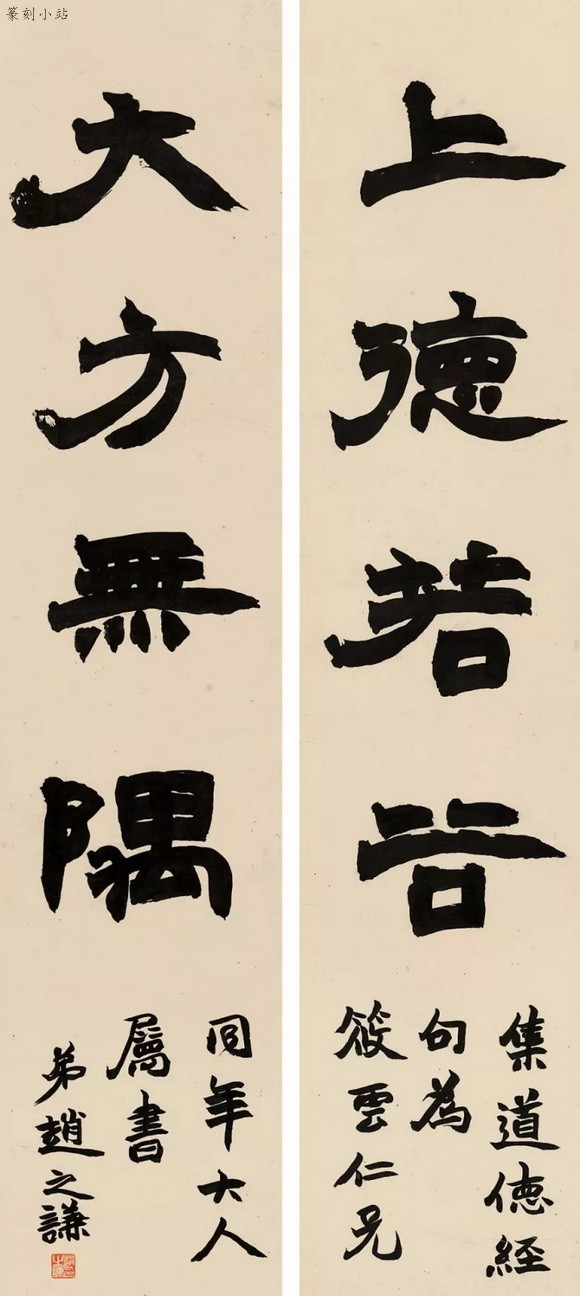 篆刻小站
上德若谷
集道德經
句為
筱雲仁兄
大方無隅
同年大人
屬書
弟趙之謙